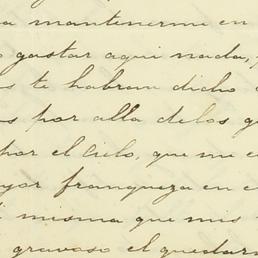 a mantenerme en
gastar aqui nada,
s te habran dicho
s por alla de los g
por el Cielo, que me
yor franqueza en
misma que mis
gravoso el quedar